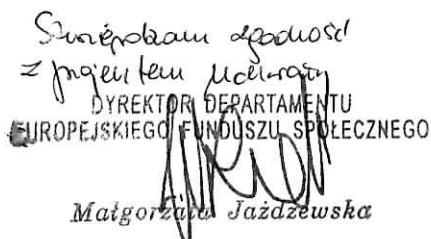 Stwierdzam zgodność
z projektem uchwały
DYREKTOR DEPARTAMENTU
EUROPEJSKIEGO FUNDUSZU SPOŁECZNEGO
Małgorzata Jażdżewska